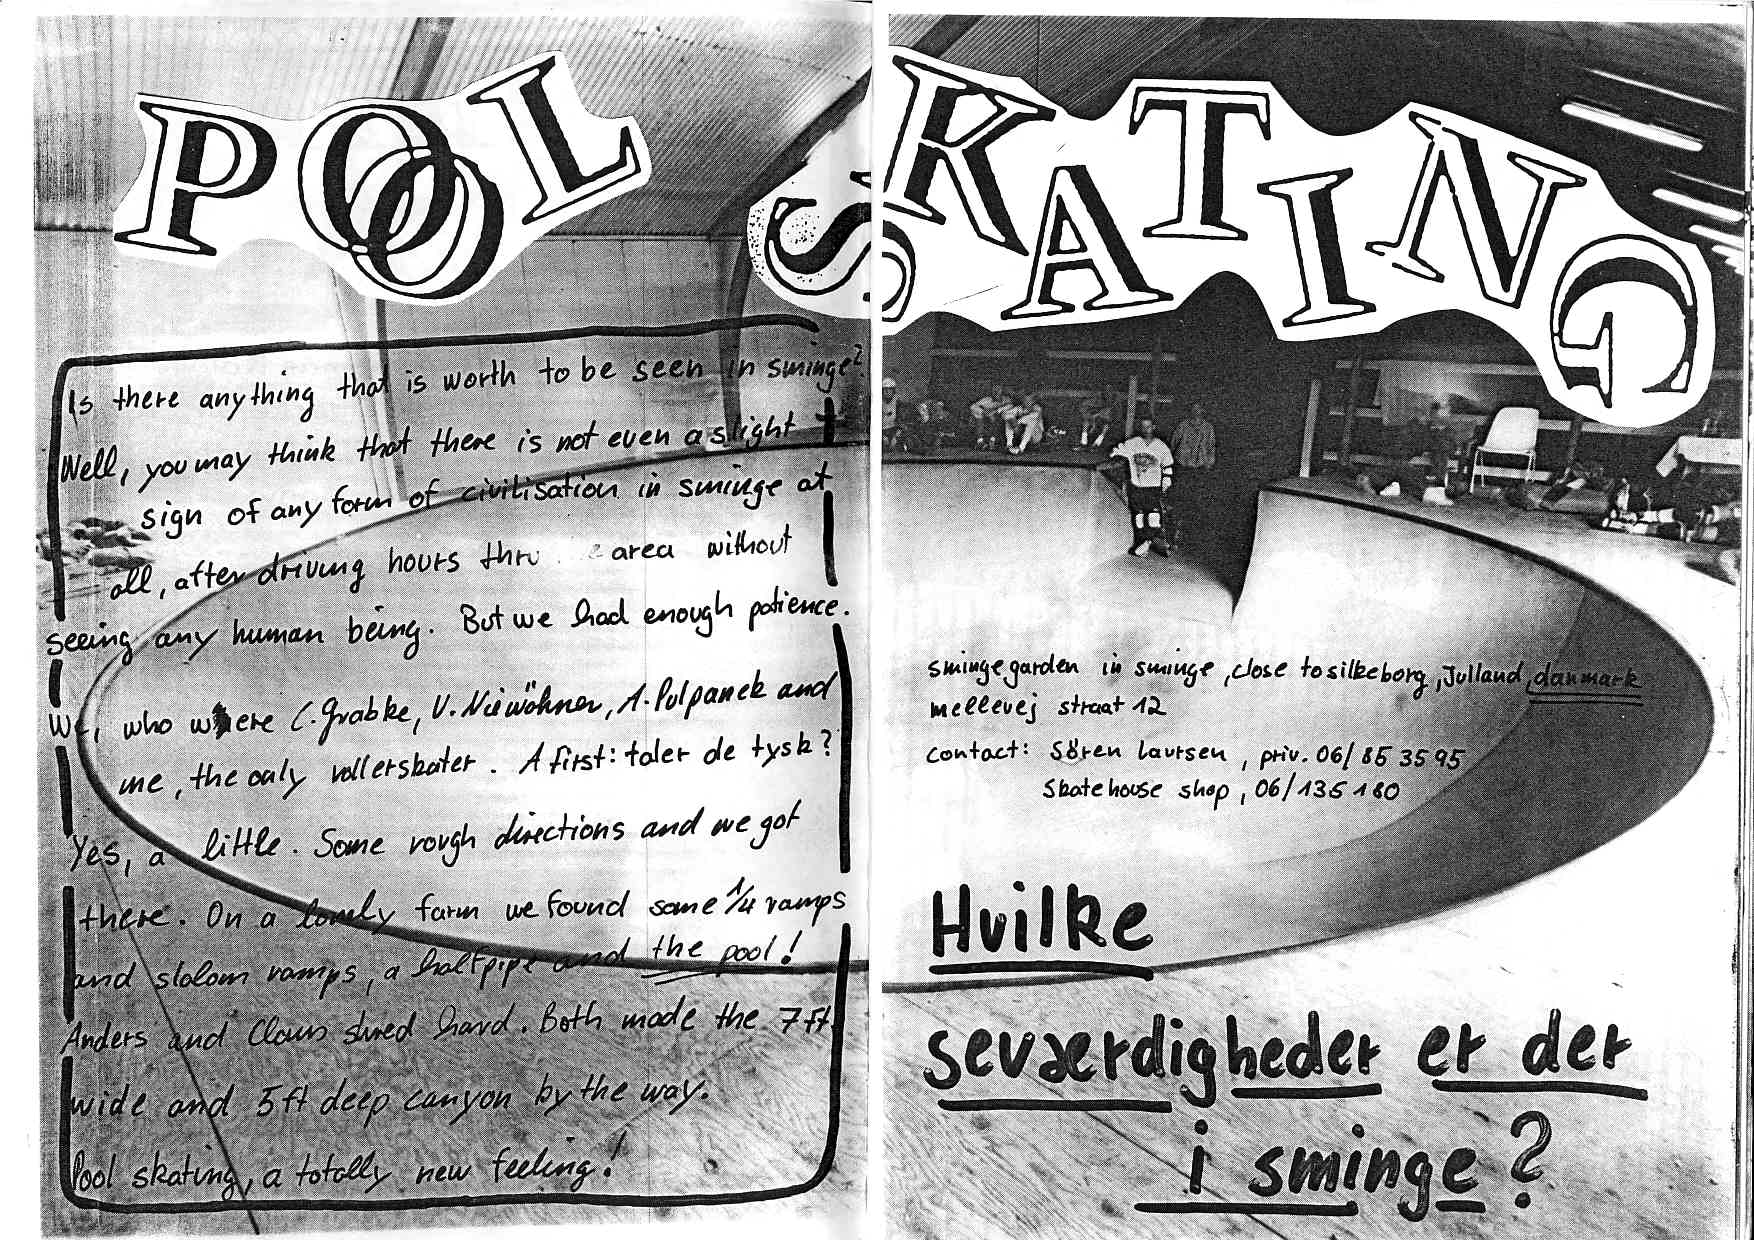 POOL SKATING
Is there anything that is worth to be seen in sminge?
Well, you may think that there is not even a slight
sign of any form of civilisation in sminge at
all, after driving hours thru area without
seeing any human being. But we had enough patience.
We, who where C. Grabke, V. Niewöhner, A. Pulpanek and
me, the only rollerskater. A first: taler de tysk?
Yes, a little. Some rough directions and we got
there. On a lonely farm we found some 1/4 ramps
and slolom ramps, a halfpipe and the pool!
Anders and Claus shred hard. Both made the 7ft
wide and 5ft deep canyon by the way.
Pool skating, a totally new feeling!
smingegarden in sminge, close to silkeborg, Julland, danmark
mellevej straat 12
contact: Sören Laursen, priv. 06/ 85 35 95
Skatehouse shop, 06/135 180
Hvilke
seværdigheder er der
i sminge?